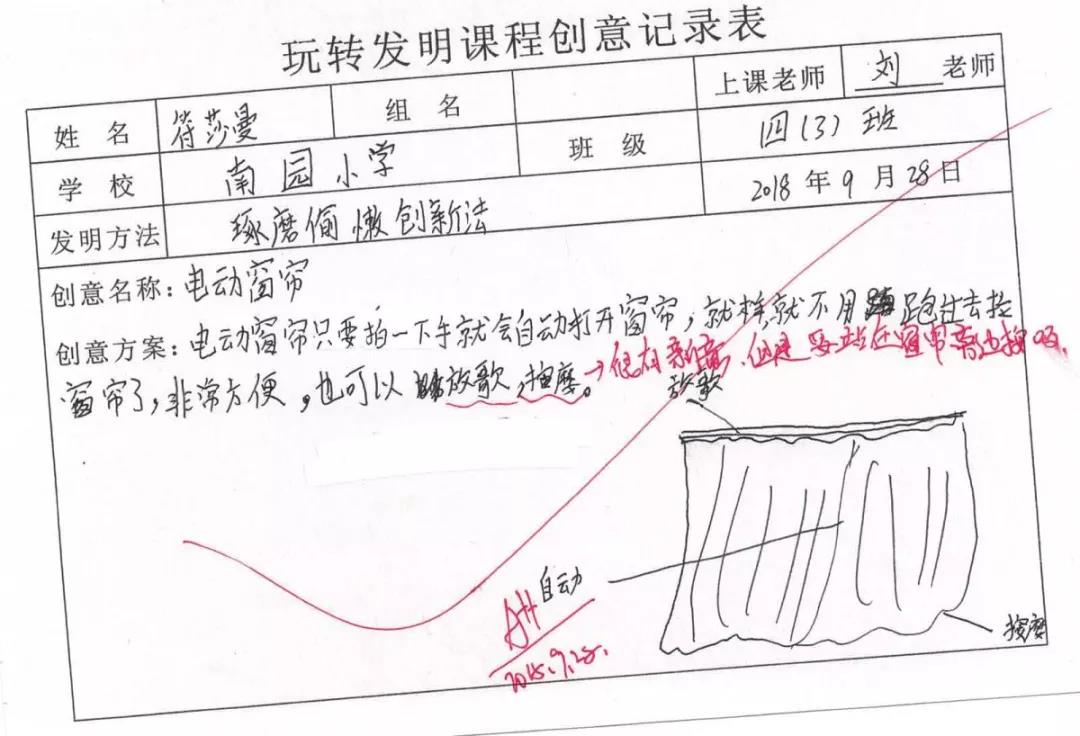 玩转发明课程创意记录表
姓 名 符莎曼 组 名 上课老师 刘 老师
学 校 南园小学 班 级 四(3)班
发明方法 琢磨偷懒创新法 2018年9月28日
创意名称:电动窗帘
创意方案:电动窗帘只要拍一下手就会自动打开窗帘,就样就不用跑过去拉
窗帘了,非常方便,也可以放歌,按摩。
→很有新意,但是要站在窗帘旁边按吗
放歌
自动
A+
2018.9.28.
按摩